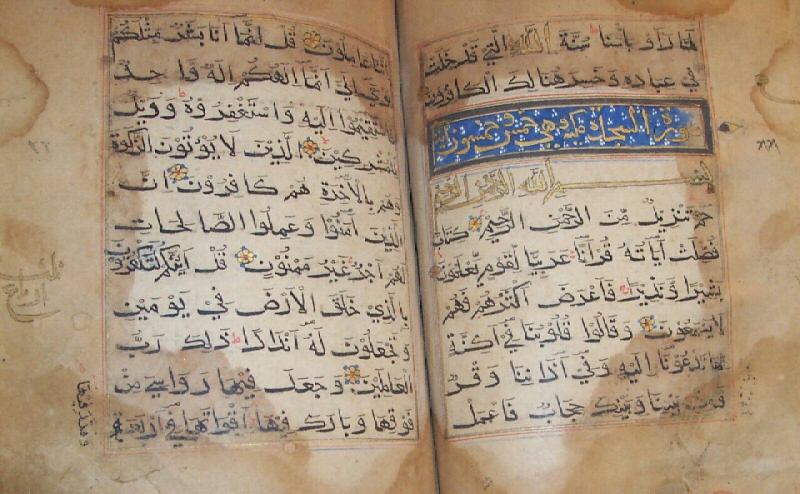 لَمَّا رَأَوْا بَأْسَنَا سُنَّةَ اللَّهِ الَّتِي قَدْ خَلَتْ
فِي عِبَادِهِ وَخَسِرَ هُنَالِكَ الْكَافِرُونَ
سورة السجدة مكية وهي خمس وخمسون
بسم الله الرحمن الرحيم
حم تَنْزِيلٌ مِنَ الرَّحْمٰنِ الرَّحِيمِ كِتَابٌ
فُصِّلَتْ آيَاتُهُ قُرْآنًا عَرَبِيًّا لِقَوْمٍ يَعْلَمُونَ
بَشِيرًا وَنَذِيرًا فَأَعْرَضَ أَكْثَرُهُمْ فَهُمْ
لَا يَسْمَعُونَ وَقَالُوا قُلُوبُنَا فِي أَكِنَّةٍ
مِمَّا تَدْعُونَا إِلَيْهِ وَفِي آذَانِنَا وَقْرٌ
وَمِنْ بَيْنِنَا وَبَيْنِكَ حِجَابٌ فَاعْمَلْ
إِنَّنَا عَامِلُونَ قُلْ إِنَّمَا أَنَا بَشَرٌ مِثْلُكُمْ
يُوحَى إِلَيَّ أَنَّمَا إِلٰهُكُمْ إِلٰهٌ وَاحِدٌ
فَاسْتَقِيمُوا إِلَيْهِ وَاسْتَغْفِرُوهُ وَوَيْلٌ
لِلْمُشْرِكِينَ الَّذِينَ لَا يُؤْتُونَ الزَّكٰوةَ
وَهُمْ بِالْآخِرَةِ هُمْ كَافِرُونَ إِنَّ
الَّذِينَ آمَنُوا وَعَمِلُوا الصَّالِحَاتِ
لَهُمْ أَجْرٌ غَيْرُ مَمْنُونٍ قُلْ أَئِنَّكُمْ لَتَكْفُرُونَ
بِالَّذِي خَلَقَ الْأَرْضَ فِي يَوْمَيْنِ
وَتَجْعَلُونَ لَهُ أَنْدَادًا ذٰلِكَ رَبُّ
الْعَالَمِينَ وَجَعَلَ فِيهَا رَوَاسِيَ مِنْ
فَوْقِهَا وَبَارَكَ فِيهَا أَقْوَاتَهَا فِي أَرْبَعَةِ
وقدر فيها